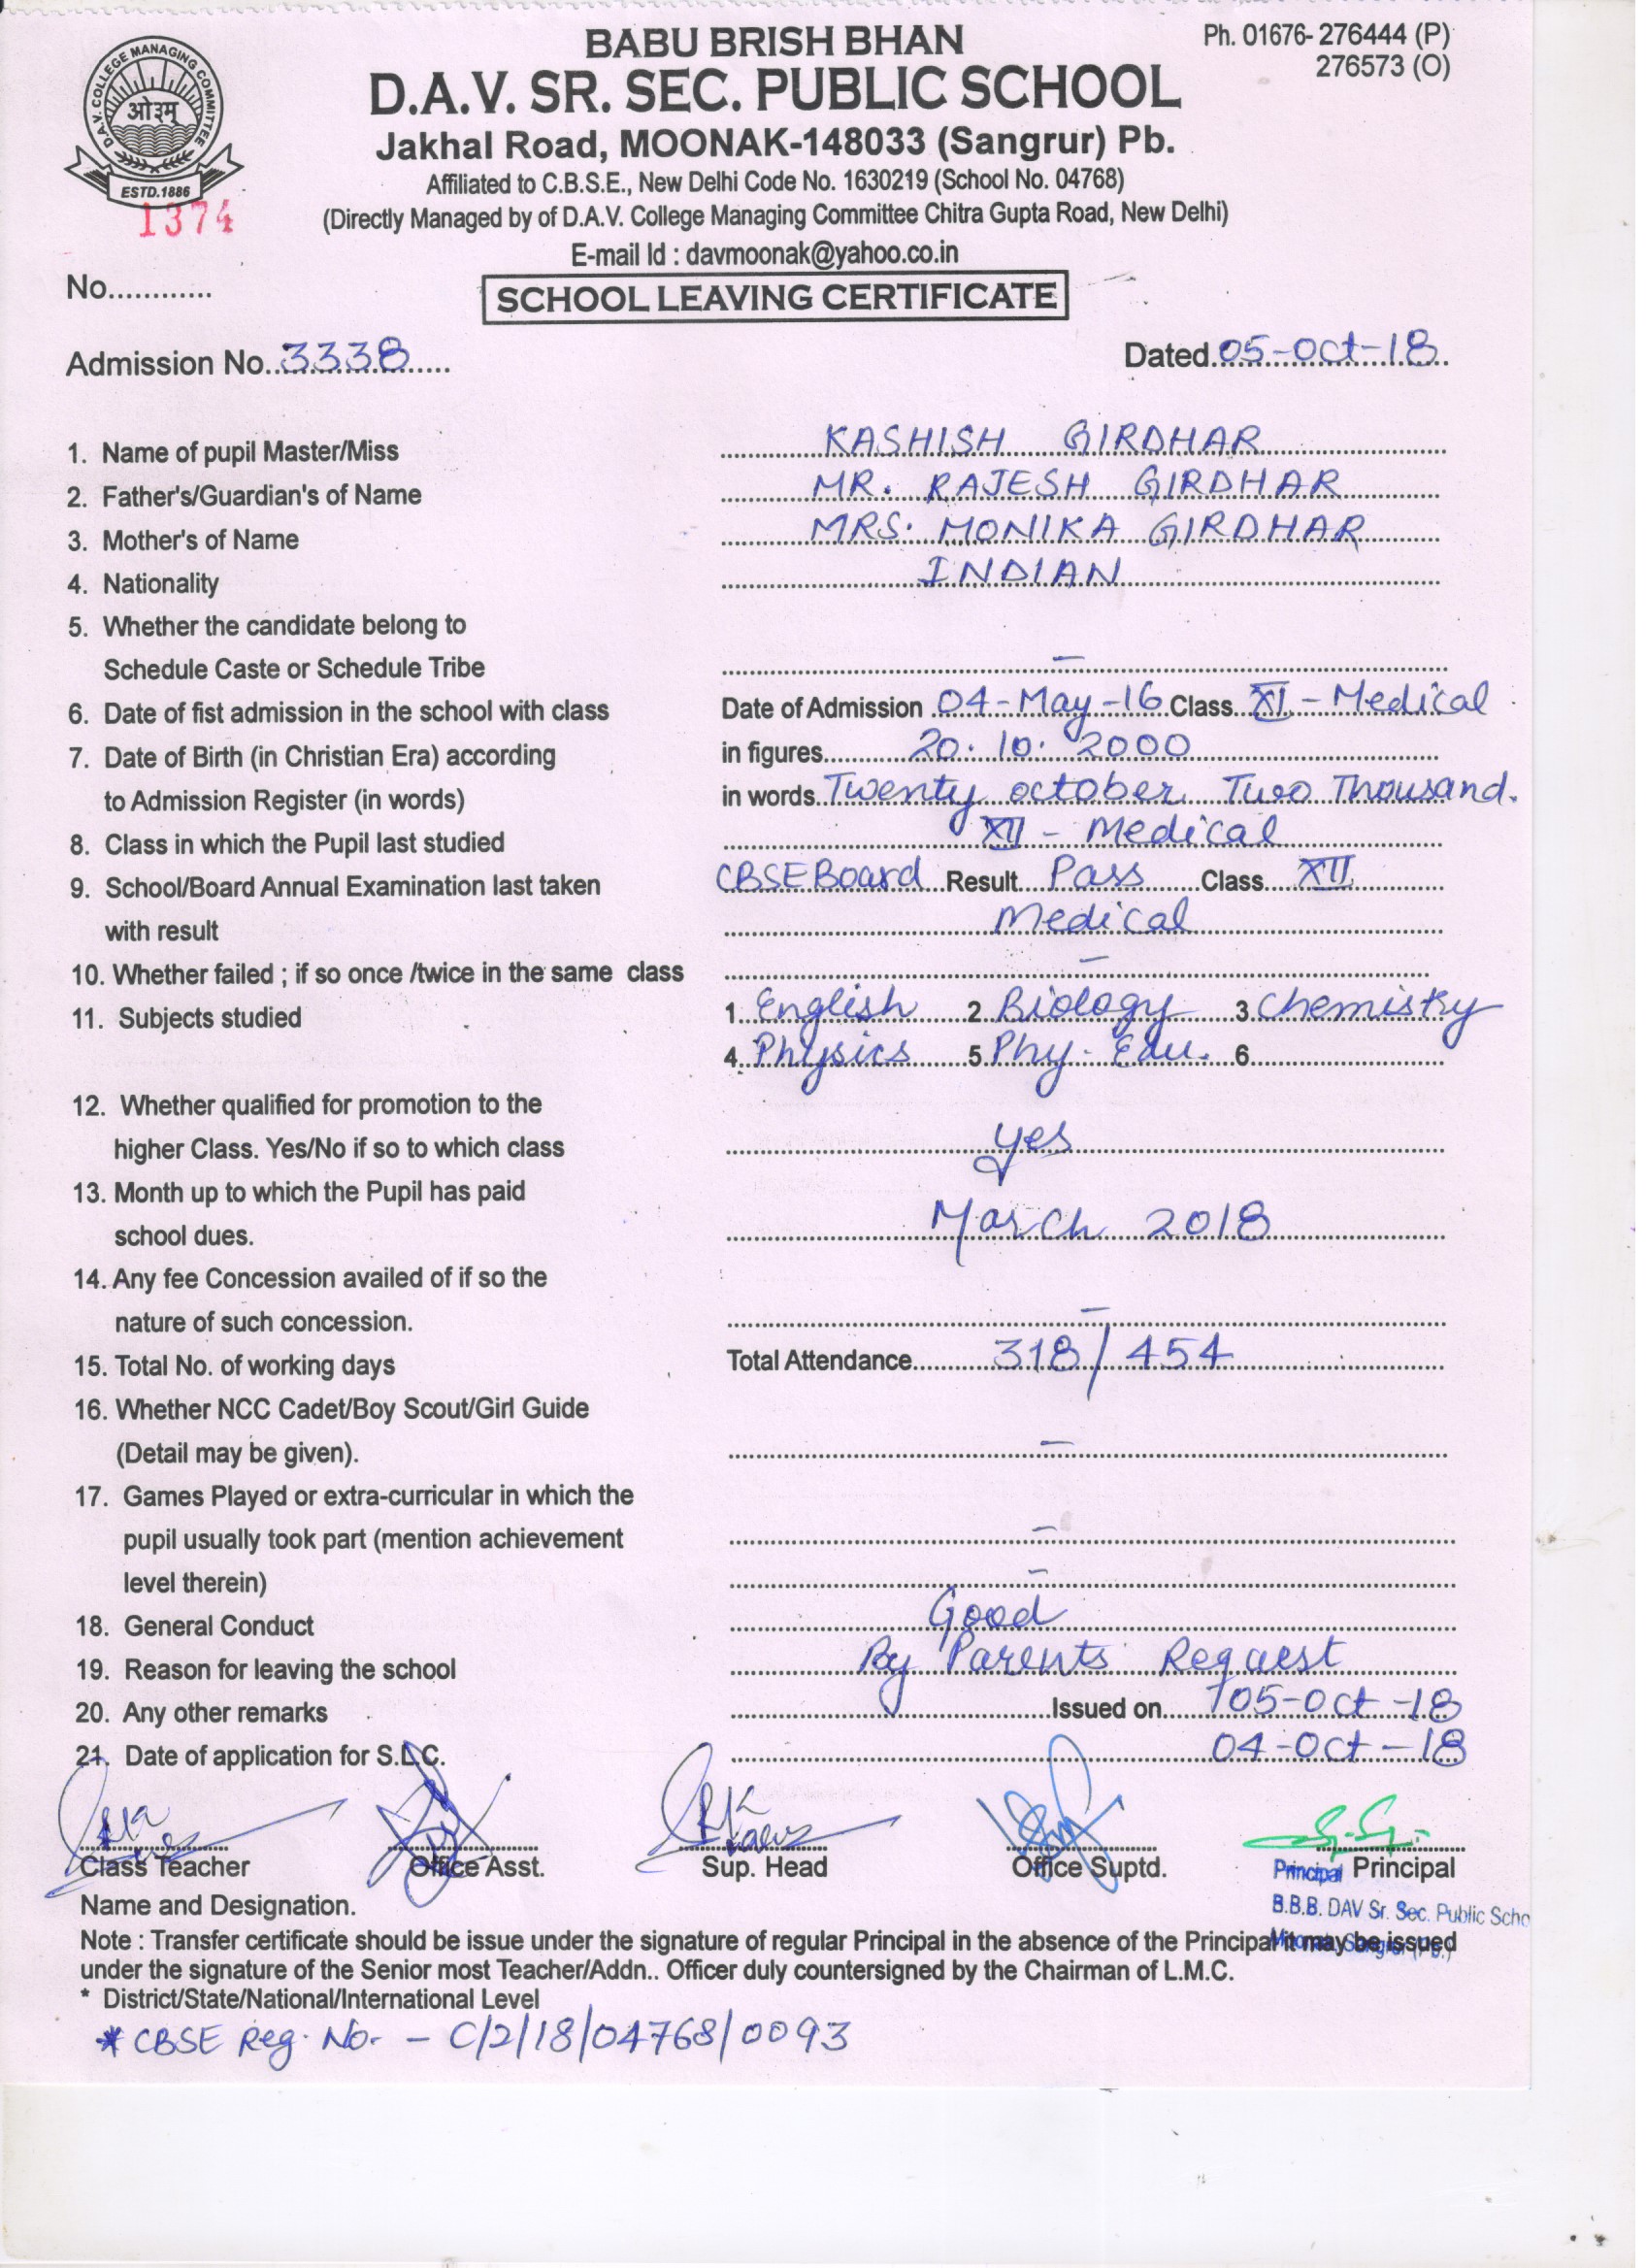 BABU BRISH BHAN
Ph. 01676- 276444 (P)
276573 (O)
D.A.V. SR. SEC. PUBLIC SCHOOL
D.A.V. COLLEGE MANAGING COMMITTEE
ओ३म्
ESTD.1886
Jakhal Road, MOONAK-148033 (Sangrur) Pb.
Affiliated to C.B.S.E., New Delhi Code No. 1630219 (School No. 04768)
1374
(Directly Managed by of D.A.V. College Managing Committee Chitra Gupta Road, New Delhi)
E-mail Id : davmoonak@yahoo.co.in
No............
SCHOOL LEAVING CERTIFICATE
Admission No. 3338
Dated 05-Oct-18
1. Name of pupil Master/Miss KASHISH GIRDHAR
2. Father's/Guardian's of Name MR. RAJESH GIRDHAR
3. Mother's of Name MRS. MONIKA GIRDHAR
4. Nationality INDIAN
5. Whether the candidate belong to
Schedule Caste or Schedule Tribe –
6. Date of fist admission in the school with class Date of Admission 04-May-16 Class XI - Medical
7. Date of Birth (in Christian Era) according in figures 20. 10. 2000
to Admission Register (in words) in words Twenty october Two Thousand.
8. Class in which the Pupil last studied XII - Medical
9. School/Board Annual Examination last taken CBSE Board Result Pass Class XII
with result Medical
10. Whether failed ; if so once /twice in the same class –
11. Subjects studied 1. English 2 Biology 3. Chemistry
4. Physics 5 Phy. Edu. 6
12. Whether qualified for promotion to the
higher Class. Yes/No if so to which class yes
13. Month up to which the Pupil has paid
school dues. March 2018
14. Any fee Concession availed of if so the
nature of such concession. –
15. Total No. of working days Total Attendance 318/454
16. Whether NCC Cadet/Boy Scout/Girl Guide
(Detail may be given). –
17. Games Played or extra-curricular in which the
pupil usually took part (mention achievement –
level therein) –
18. General Conduct Good
19. Reason for leaving the school By Parents Request
20. Any other remarks Issued on 05-Oct-18
21. Date of application for S.L.C. 04-Oct-18
Class Teacher Office Asst. Sup. Head Office Suptd. Principal Principal
Name and Designation.
B.B.B. DAV Sr. Sec. Public Scho
Note : Transfer certificate should be issue under the signature of regular Principal in the absence of the Principal it may be issued
under the signature of the Senior most Teacher/Addn.. Officer duly countersigned by the Chairman of L.M.C.
* District/State/National/International Level
* CBSE Reg. No. - C/2/18/04768/0093